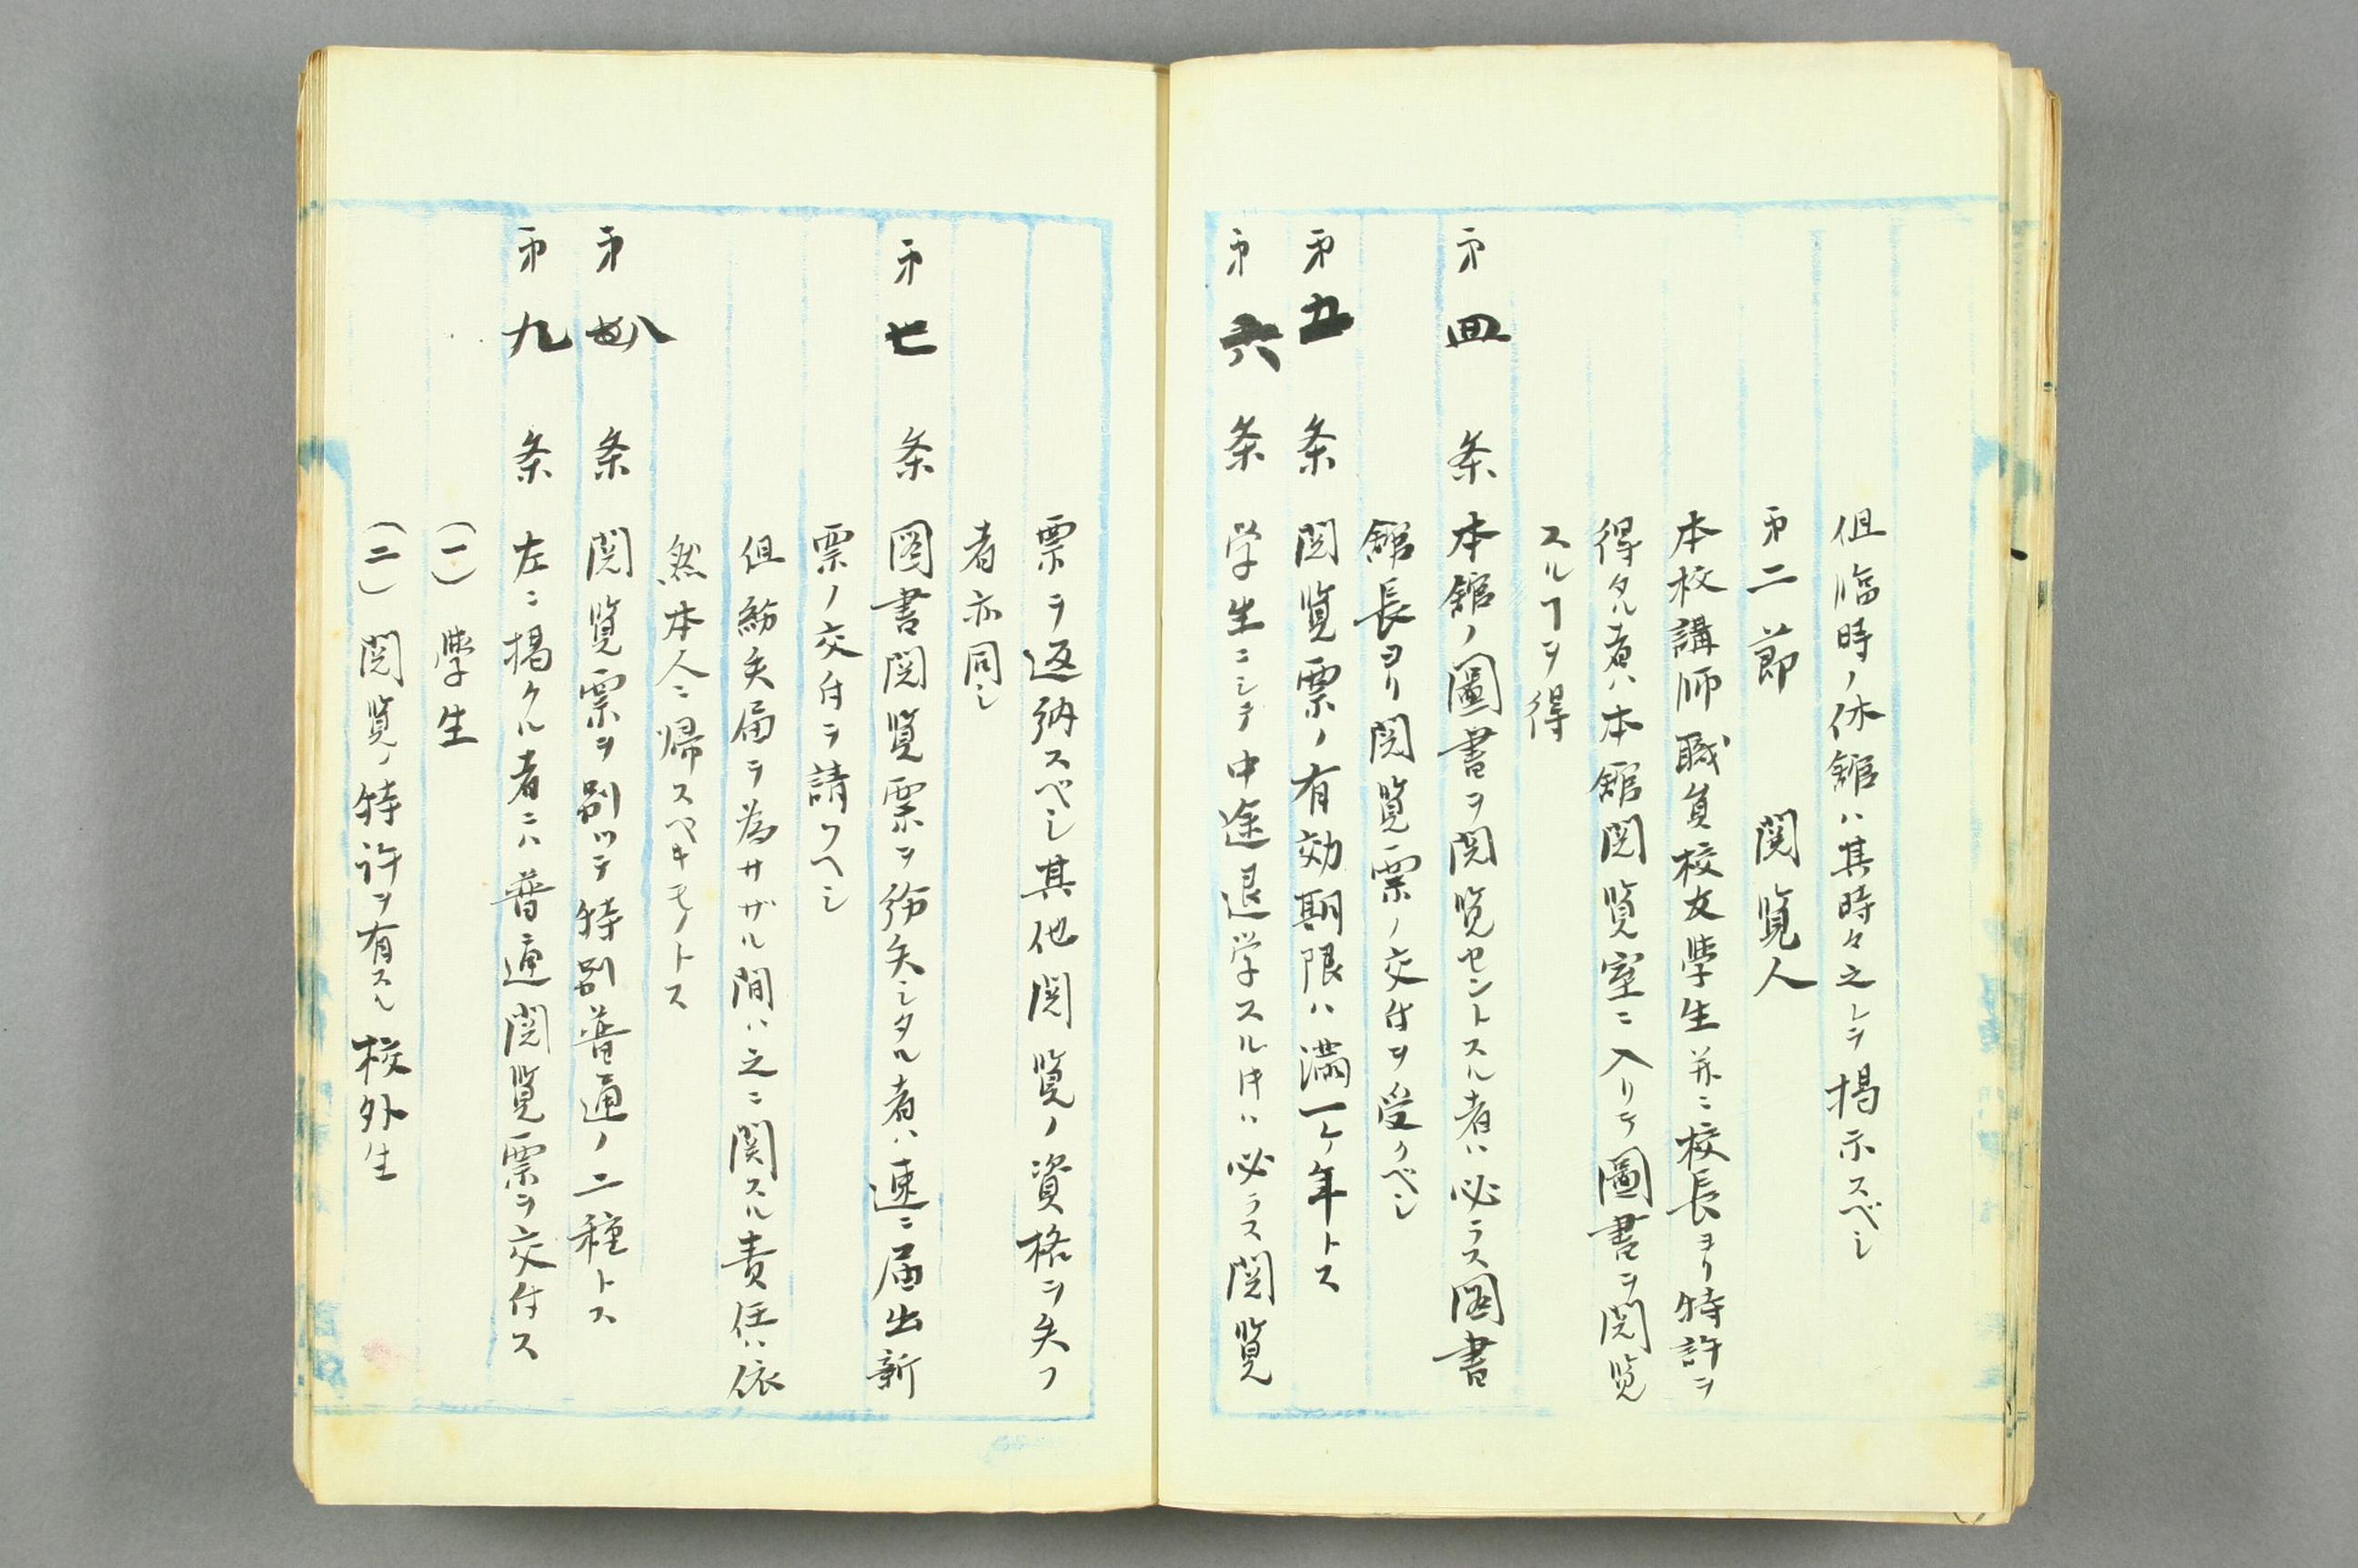 但臨時ノ休館ハ其時々之レヲ掲示スベシ
㐧二節 閲覧人
本校講師職員校友學生并ニ校長ヨリ特許ヲ
得タル者ハ本館閲覧室ニ入リテ圖書ヲ閲覧
スルヿヲ得
㐧四条 本館ノ圖書ヲ閲覧セントスル者ハ必ラス図書
館長ヨリ閲覧票ノ交付ヲ受クベシ
㐧五条 閲覧票ノ有効期限ハ満一ケ年トス
㐧六条 学生ニシテ中途退学スルトキハ必ラス閲覧
票ヲ返納スベシ其他閲覧ノ資格ヲ失フ
者亦同シ
㐧七条 図書閲覧票ヲ紛失シタル者ハ速ニ届出新
票ノ交付ヲ請フヘシ
但紛失届ヲ為サザル間ハ之ニ関スル責任ハ依
然本人ニ帰スベキモノトス
㐧八条 閲覧票ヲ別ツテ特別普通ノ二種トス
㐧九条 左ニ掲クル者ニハ普通閲覧票ヲ交付ス
(一) 學生
(二) 閲覧ノ特許ヲ有スル校外生